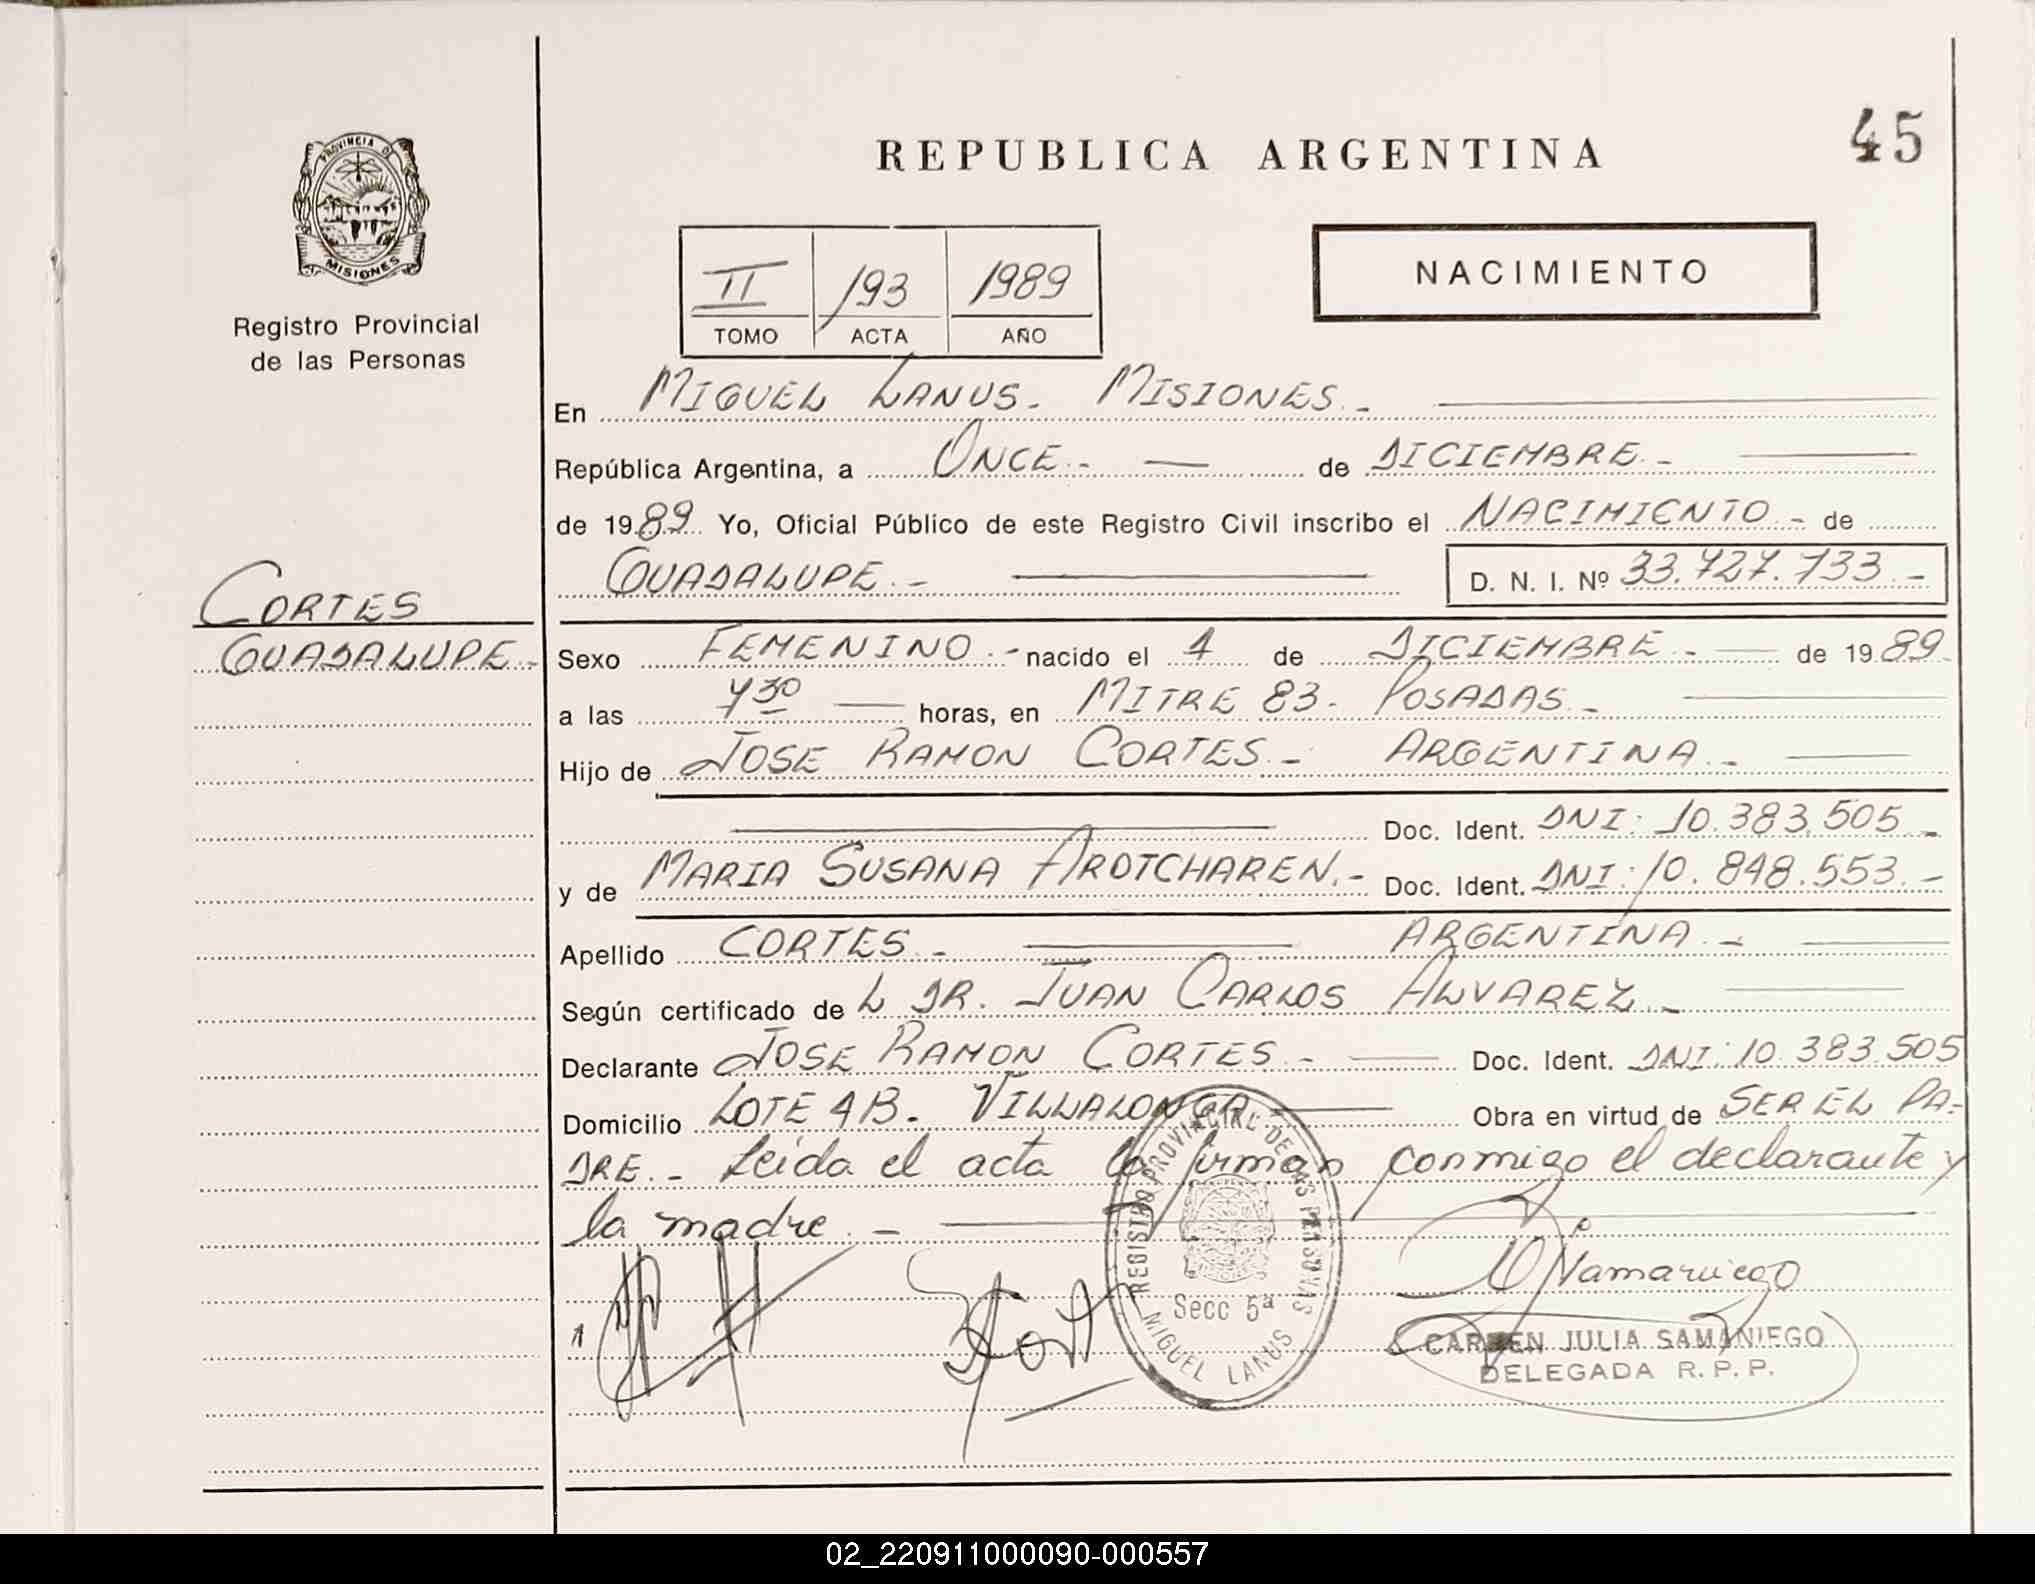 45
REPUBLICA ARGENTINA
PROVINCIA DE
MISIONES
Registro Provincial
de las Personas
II 193 1989
TOMO ACTA AÑO
NACIMIENTO
En MIGUEL LANUS.- MISIONES.-
República Argentina, a ONCE.- de DICIEMBRE.-
de 1989 Yo, Oficial Público de este Registro Civil inscribo el NACIMIENTO.- de
GUADALUPE.- D. N. I. Nº 33.727.733.-
CORTES
GUADALUPE.-
Sexo FEMENINO.- nacido el 4 de DICIEMBRE.- de 1989.
a las 7 30 horas, en MITRE 83.- POSADAS.-
Hijo de JOSE RAMON CORTES.- ARGENTINA.-
Doc. Ident. DNI: 10.383.505.-
y de MARIA SUSANA AROTCHAREN.- Doc. Ident. DNI: 10.848.553.-
Apellido CORTES.- ARGENTINA.-
Según certificado de L DR. JUAN CARLOS ALVAREZ.-
Declarante JOSE RAMON CORTES.- Doc. Ident. DNI: 10.383.505
Domicilio LOTE 4B. VILLALONGA Obra en virtud de SER EL PA-
DRE.- Leida el acta la firman conmigo el declarante y
la madre.-
REGISTRO PROVINCIAL DE LAS PERSONAS
Secc 5ª
MIGUEL LANUS
CARMEN JULIA SAMANIEGO
DELEGADA R. P. P.
02_220911000090-000557